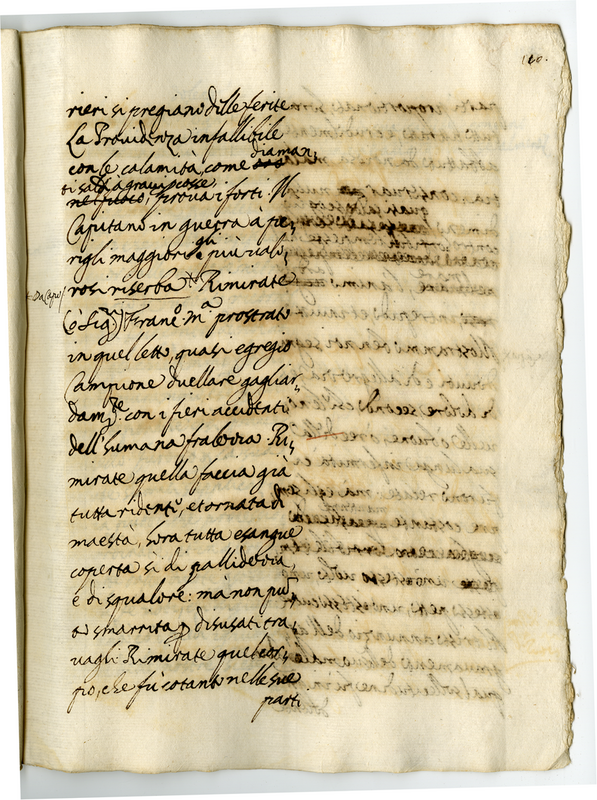 110.
rieri si pregiano delle ferite
La Providenza infallibile
con le calamità, come diaman,
ti saldi à gravi percosse
nel fuoco, prova i forti. Il
Capitano in guerra a pe,
rigli maggiori gli più valo,
rosi riserba. Rimirate
Da Capo
(ò Sig.ri) Franc.o M.a prostrato
in quel letto, quasi egregio
Campione duellare gagliar,
dam.te con i fieri accidẽti
dell'humana fralezza. Ri,
mirate quella faccia già
tutta ridente, et ornata di
maestà, hora tutta esangue
coperta si di pallidezza,
e di squalore: mà non pũ
smarrita ꝑ disusati tra,
vagli. Rimirate quel cor,
po, che fù cotanto nelle sue
parti